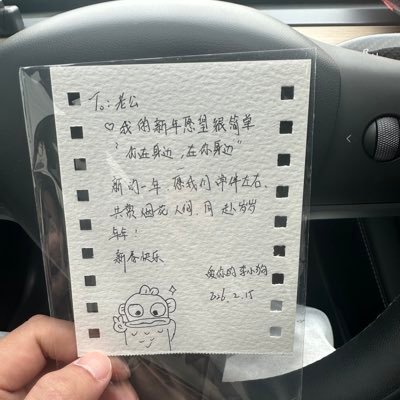 To：老公
♡我的新年愿望很简单
“你在身边，在你身边”
新的一年，愿我们常伴左右，
共赏烟花人间，同赴岁岁
年年！
新春快乐
爱你的李小狗
2026.2.15